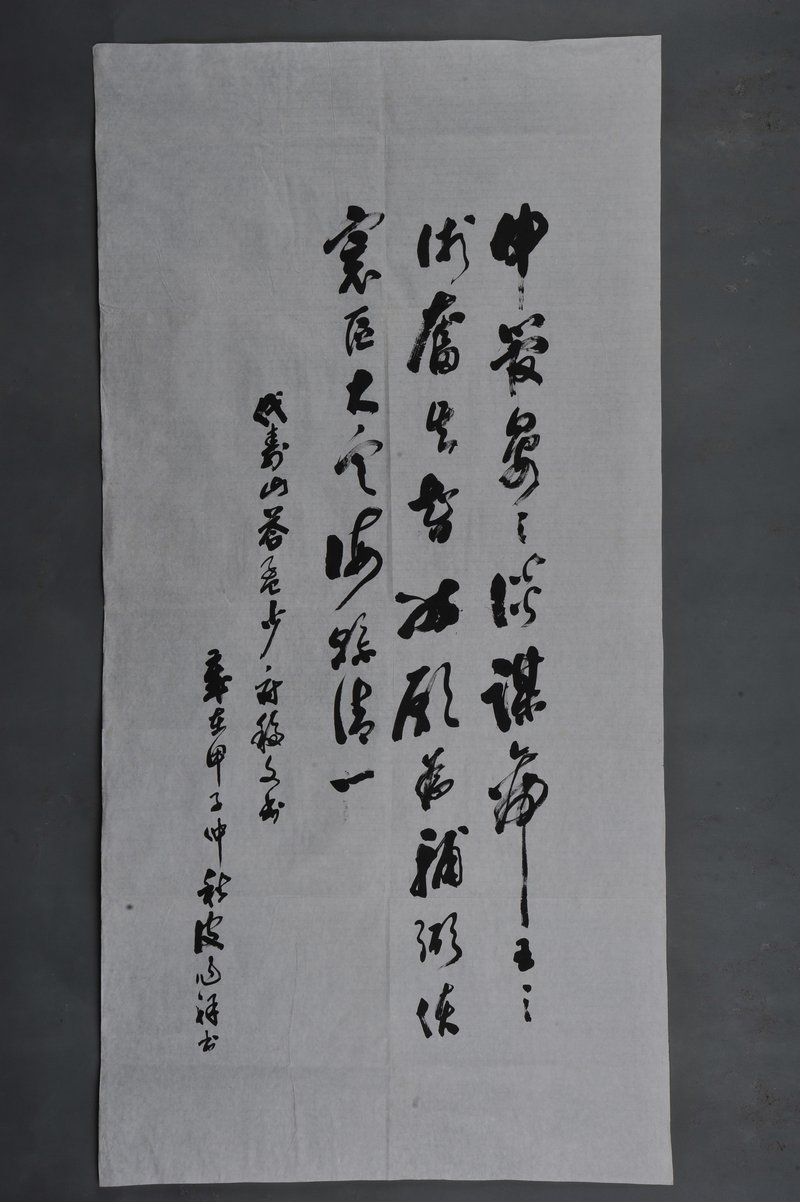 申管晏之談謀帝王之
術奮其智能願為輔弼使
寰區大定海縣清一
代壽山答孟少府移文書
歲在甲子仲秋 祥書